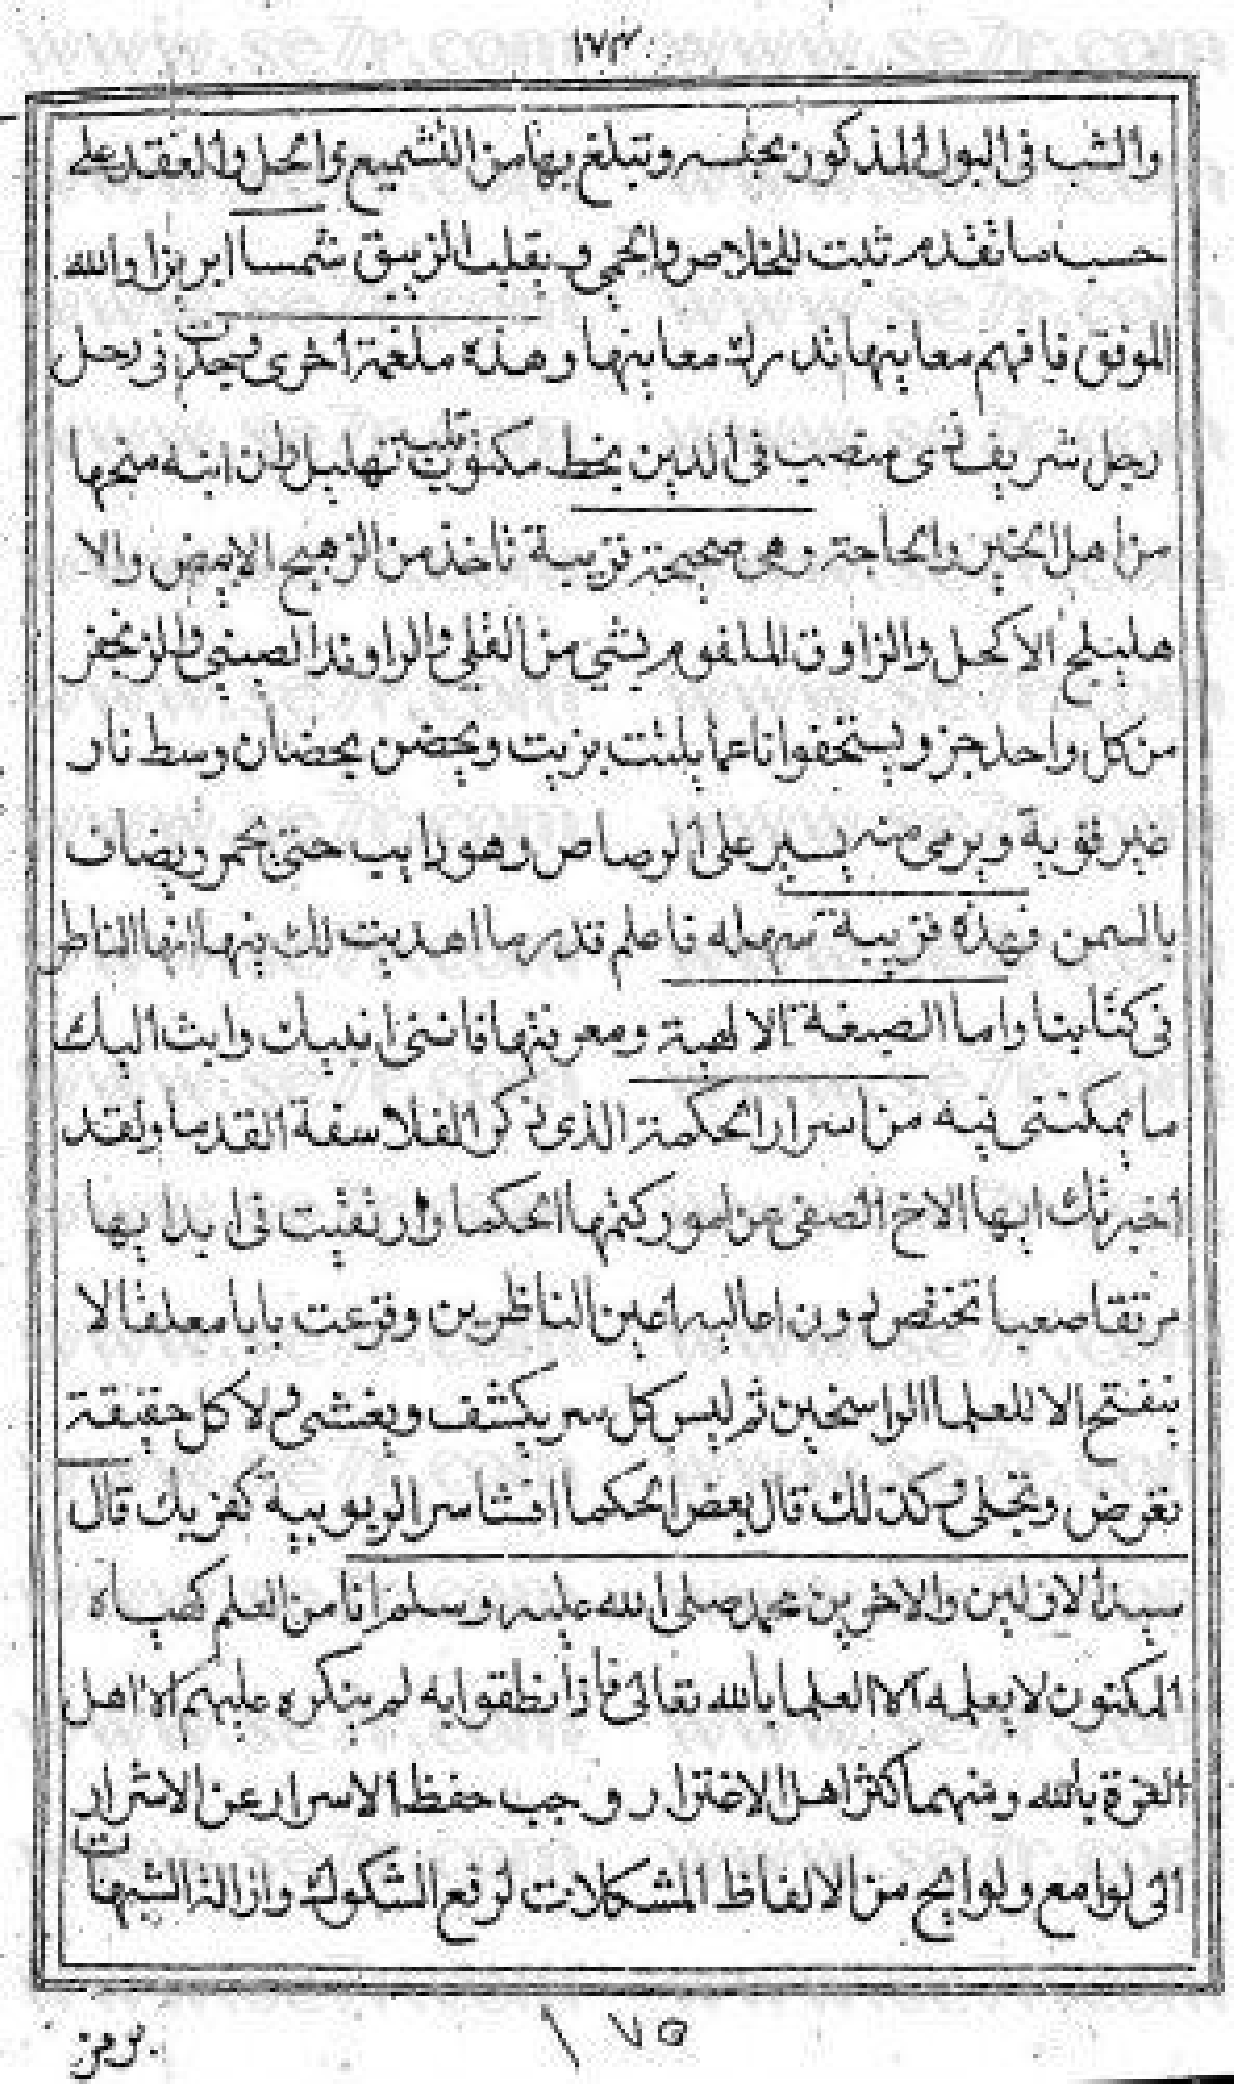 ١٧٣
والشب فى البول المذكور نحبسه وتبلغ بها من التشميع والحل والعقد على
حسب ما تقدم ثبت للخلاص والحمى ويقلب الزيبق شمسا ابريزا والله
الموفق فافهم معاينها تدرك معاينها وهذه ملغمة اخرى وجدت فى رحل
رجل شريف ذى منصب فى الدين بخط مكنون قلبه ابنه منحها
من اهل الخير والحاجة وهى صحيحة قريبة تاخذ من الرهج الابيض والا
هليلج الاكحل والزاوق الملغوم بشى من القلى والراوند الصينى والزنجفر
من كل واحد جزو ويستحقوا ناعما بلت بزيت ويحضن بحضان وسط نار
غير قوية ويرمى منه يسير على الرصاص وهو دايب حتى يحمر ويضاف
بالسمن فهذه قريبة سهله فاعلم قدر ما اهديت لك ايها الناظر
فى كتابنا واما الصبغة الالهية ومعرفتها فاننى ابث اليك
ما يمكننى فيه من اسرار الحكمة الذى ذكر الفلاسفة القدما ولقد
اخبرتك ايها الاخ الصفى عن امور كتمها الحكما وارتقيت فى
مرتقا صعبا تختفض دون اعاليه اعين الناظرين وقرعت بابا مغلقا لا
ينفتح الا للعلما الراسخين ثم ليس كل سر يكشف ويفشى ولا كل حقيقة
تعرض وتجلى وكذلك قال بعض الحكما افشا سر الربوبية كفر بك قال
سيد الاولين والاخرين محمد صلى الله عليه وسلم ان من العلم كهياة
المكنون لا يعلمه الا العلما بالله تعالى فاذا نطقوا به لم ينكره عليهم الا اهل
الغرة بالله ومنهما كثر اهل الاغترار وجب حفظ الاسرار عن الاشرار
الى لوامع ولوايح من الالفاظ المشكلات لرفع الشكوك وازالة الشبهات
١٧٥